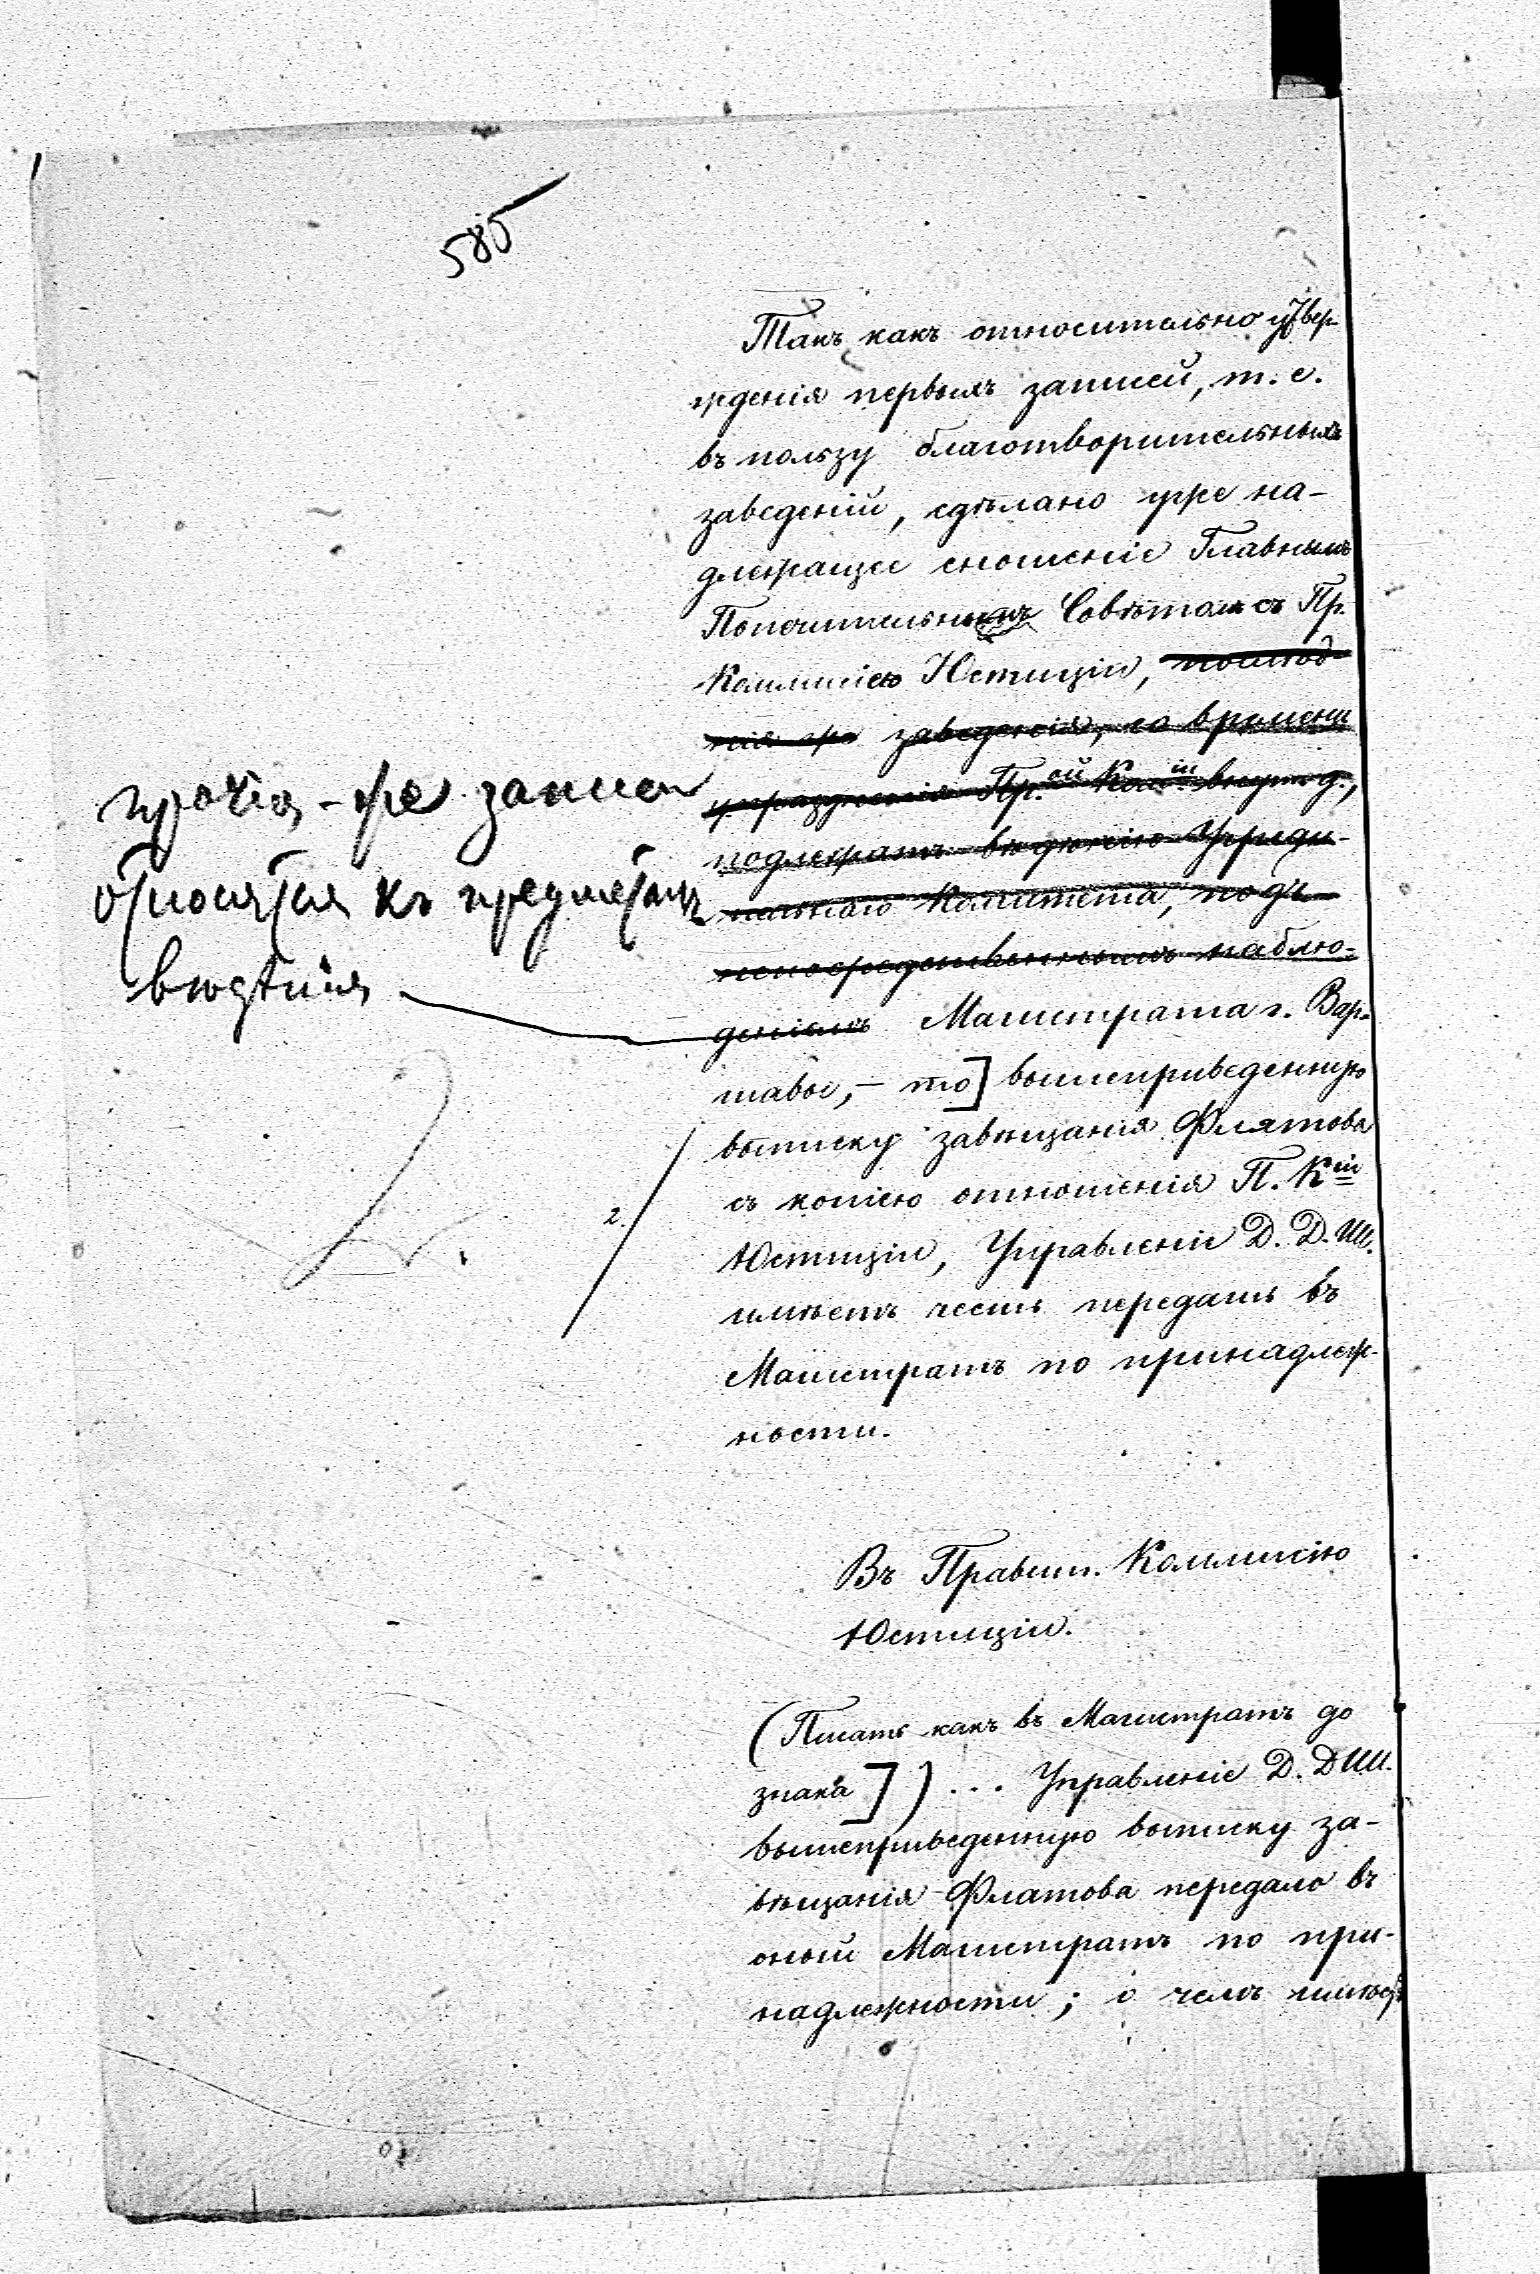 585
Такъ какъ относительно утвер-
жденія первыхъ записей, т. е.
въ пользу благотворительныхъ
заведеній, сдѣлано уже на-
длежащее сношеніе Главнымъ
Попечительнымъ Совѣтомъ съ Пр.
Коммисіею Юстиціи,
заведенія, со времени
упраздненія Пр.ой Ком.іи внут. д.,
подлежатъ вѣдѣнію Учреди-
тельнаго Комитета, подъ
непосредственнымъ наблю-
деніемъ Магистрата г. Вар-
шавы, – то] вышеприведенную
выписку завѣщанія Флятова
съ копіею отношенія П. К.іи
Юстиціи, Управленіе Д. Д. Ш.
имѣетъ честь передать въ
Магистратъ по принадлеж-
ности.
прочія-же записи
относятся къ предметамъ
вѣдѣнія
2.
Въ Правит. Коммисію
Юстиціи.
(Писать какъ въ Магистратъ до
знака ] ) ... Управленіе Д. Д Ш.
вышеприведенную выписку за-
вѣщанія Флатова передало въ
оный Магистратъ по при-
надлежности; о чемъ имѣетъ